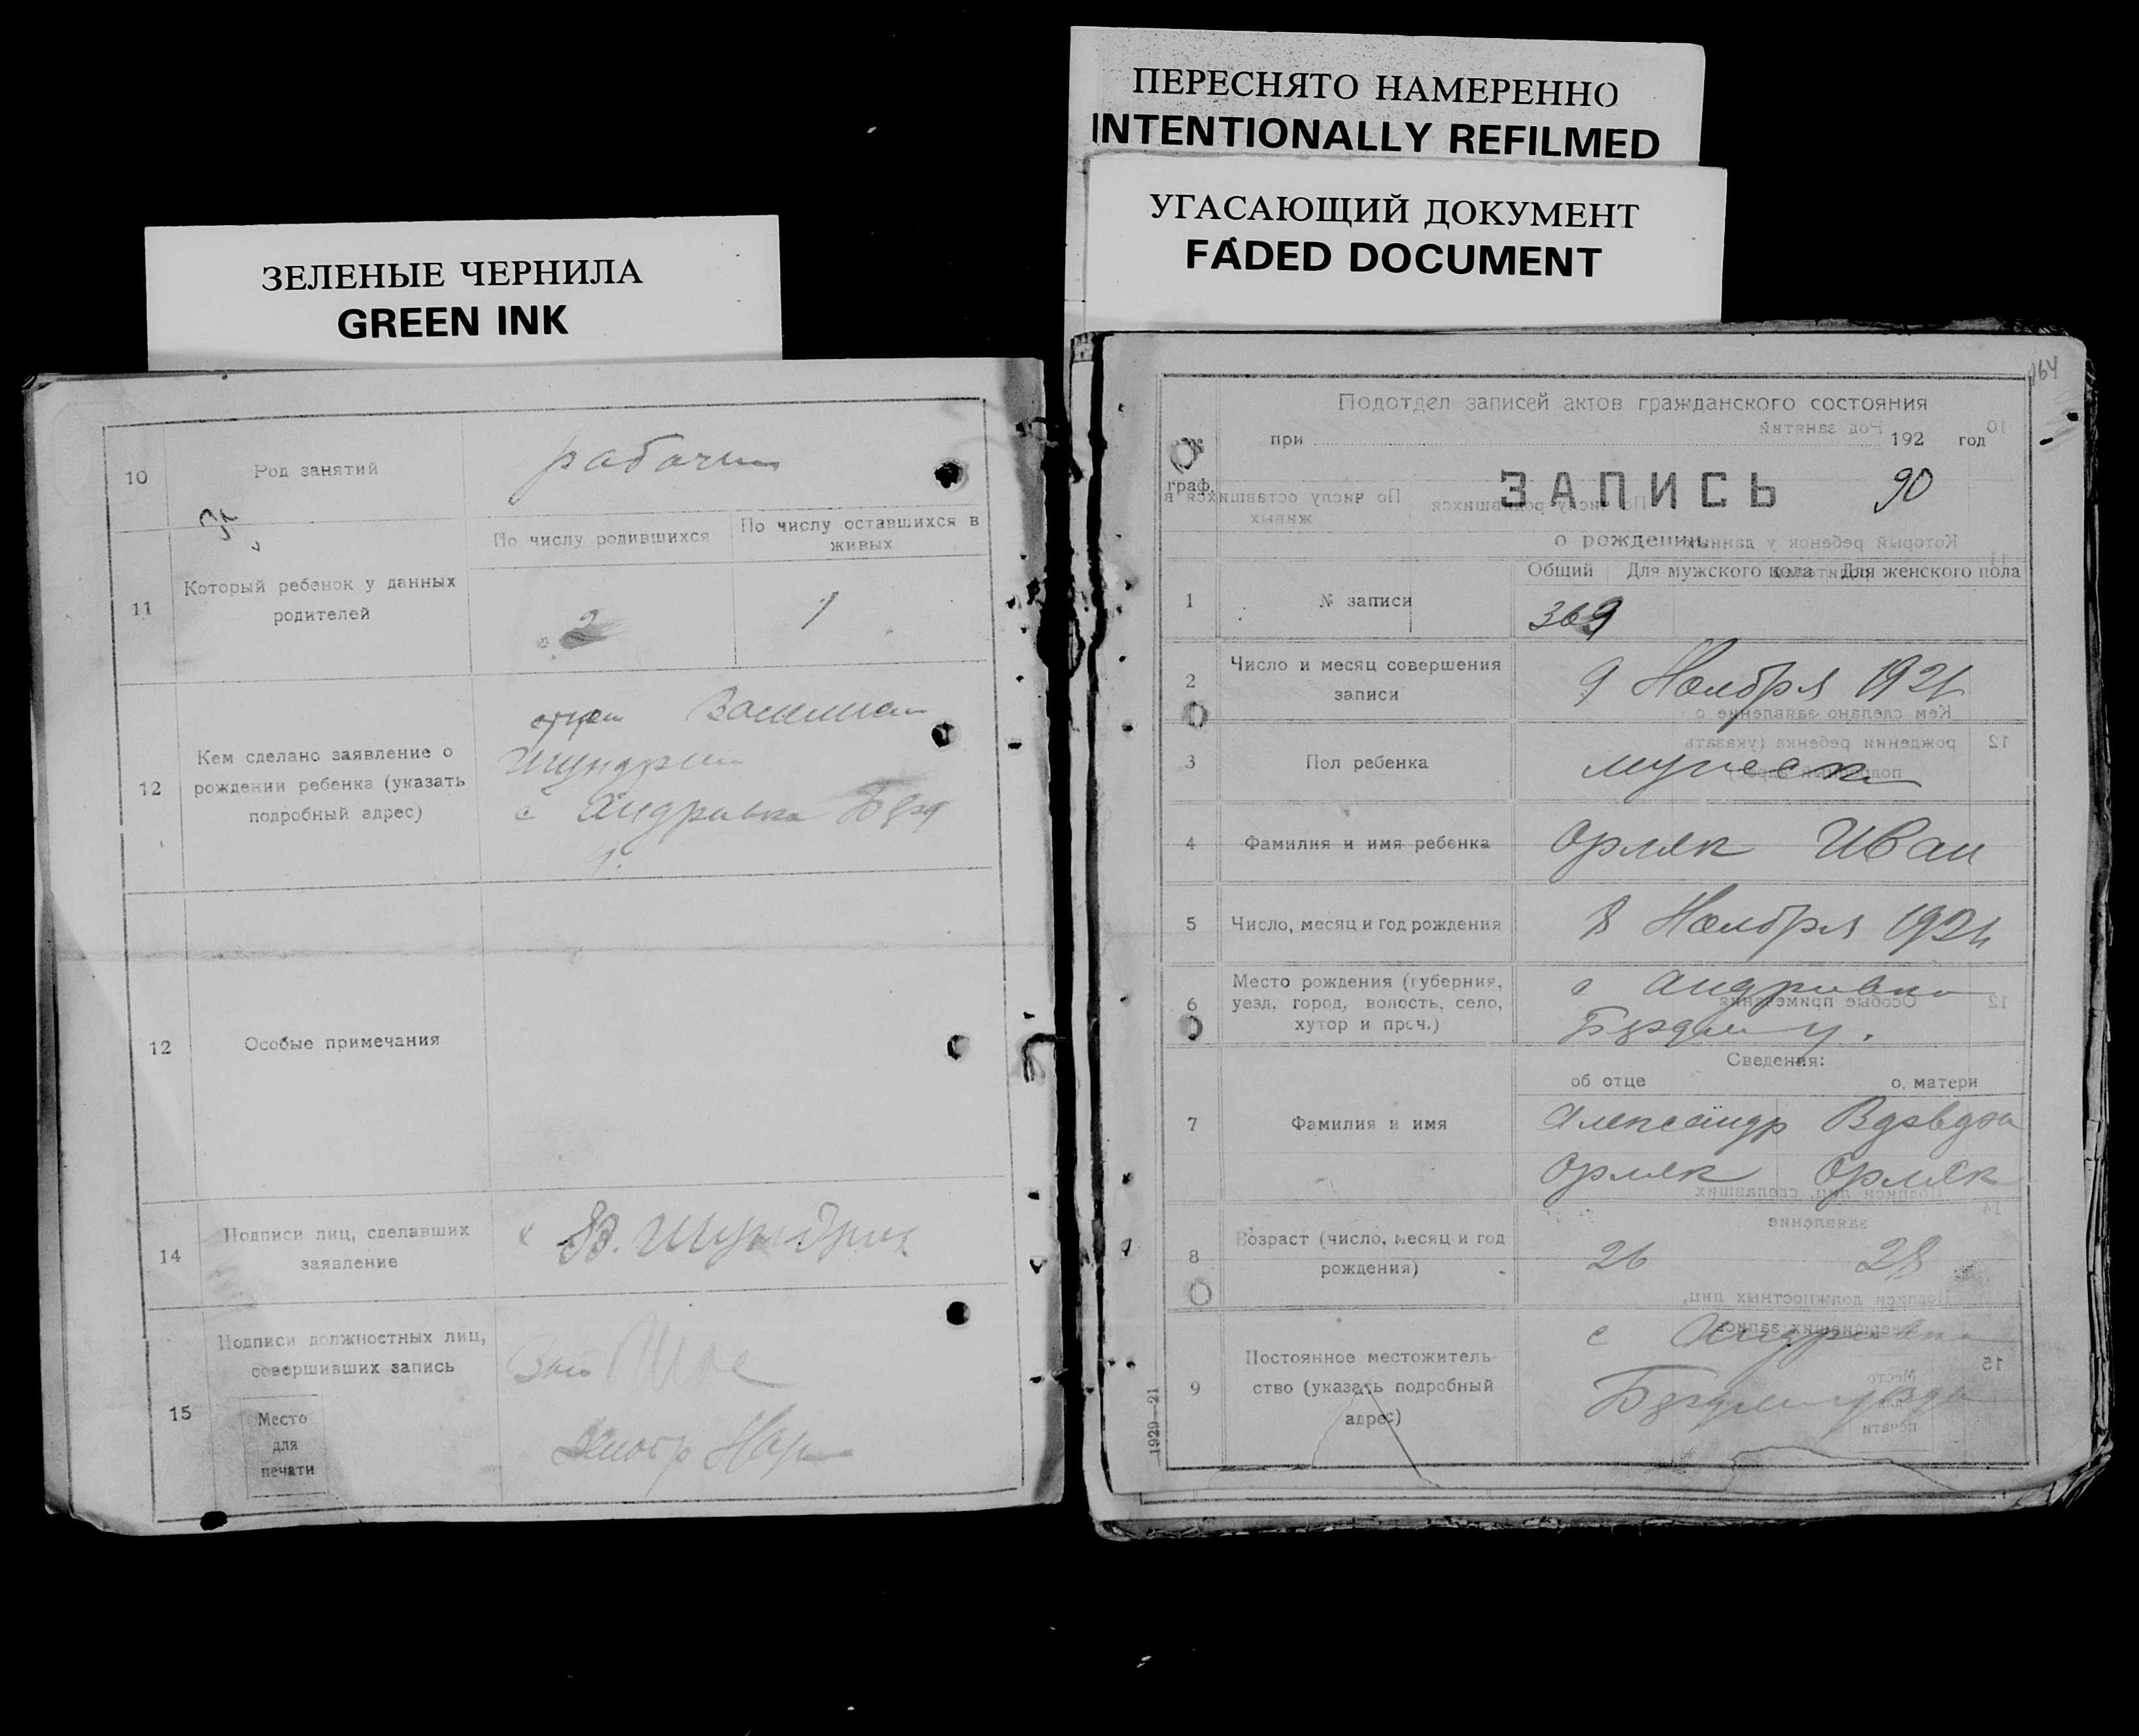 ЗЕЛЕНЫЕ ЧЕРНИЛА
GREEN INK
10
Род занятий
рабочий
11
Который ребенок у данных
родителей
По числу родившихся
По числу оставшихся в
живых
2
1
12
Кем сделано заявление о
рождении ребенка (указать
подробный адрес)
отцем
Шундрин
с Андривка
12
Особые примечания
14
Подписи лиц, сделавших
заявление
В. Шундрин
15
Подписи должностных лиц,
совершивших запись
Место
для
печати
ПЕРЕСНЯТО НАМЕРЕННО
INTENTIONALLY REFILMED
УГАСАЮЩИЙ ДОКУМЕНТ
FADED DOCUMENT
164
Подотдел записей актов гражданского состояния
при 192 год
граф.
ЗАПИСЬ 90
о рождении
Общий Для мужского пола Для женского пола
1
№ записи
369
2
Число и месяц совершения
записи
9 Ноября 1921
3
Пол ребенка
мужеск
4
Фамилия и имя ребенка
Орляк Иван
5
Число, месяц и год рождения
8 Ноября 1921
6
Место рождения (губерния,
уезд, город, волость, село,
хутор и проч.)
с Андривка
Сведения:
об отце о матери
7
Фамилия и имя
Александр
Орляк Орляк
8
Возраст (число, месяц и год
рождения)
26 28
9
Постоянное местожитель-
ство (указать подробный
адрес)
с Андривка
1929—21